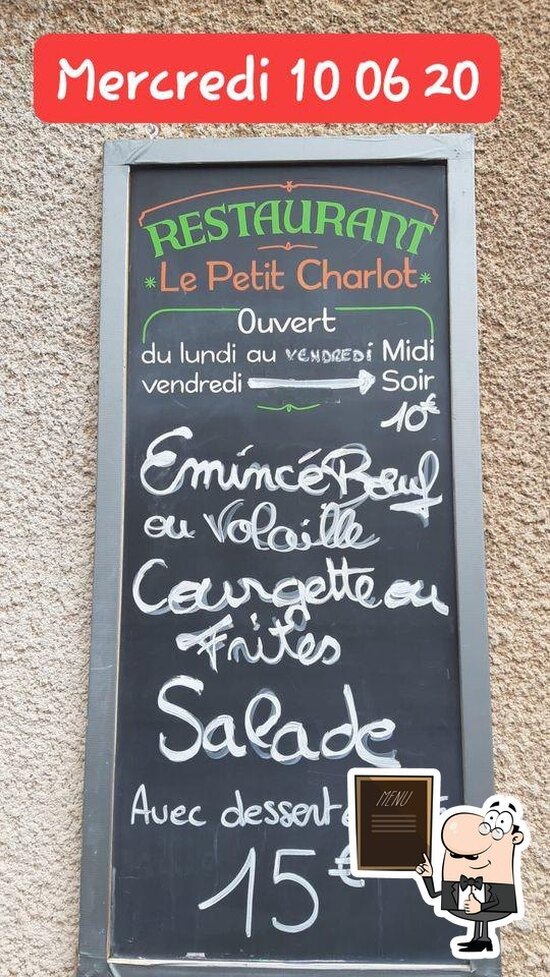 Mercredi 10 06 20
RESTAURANT
Le Petit Charlot
Ouvert
du lundi au VENDREDI Midi
vendredi Soir
10€
Emincé Bœuf
ou Volaille
Courgette ou
Frites
Salade
Avec dessert
15€
MENU